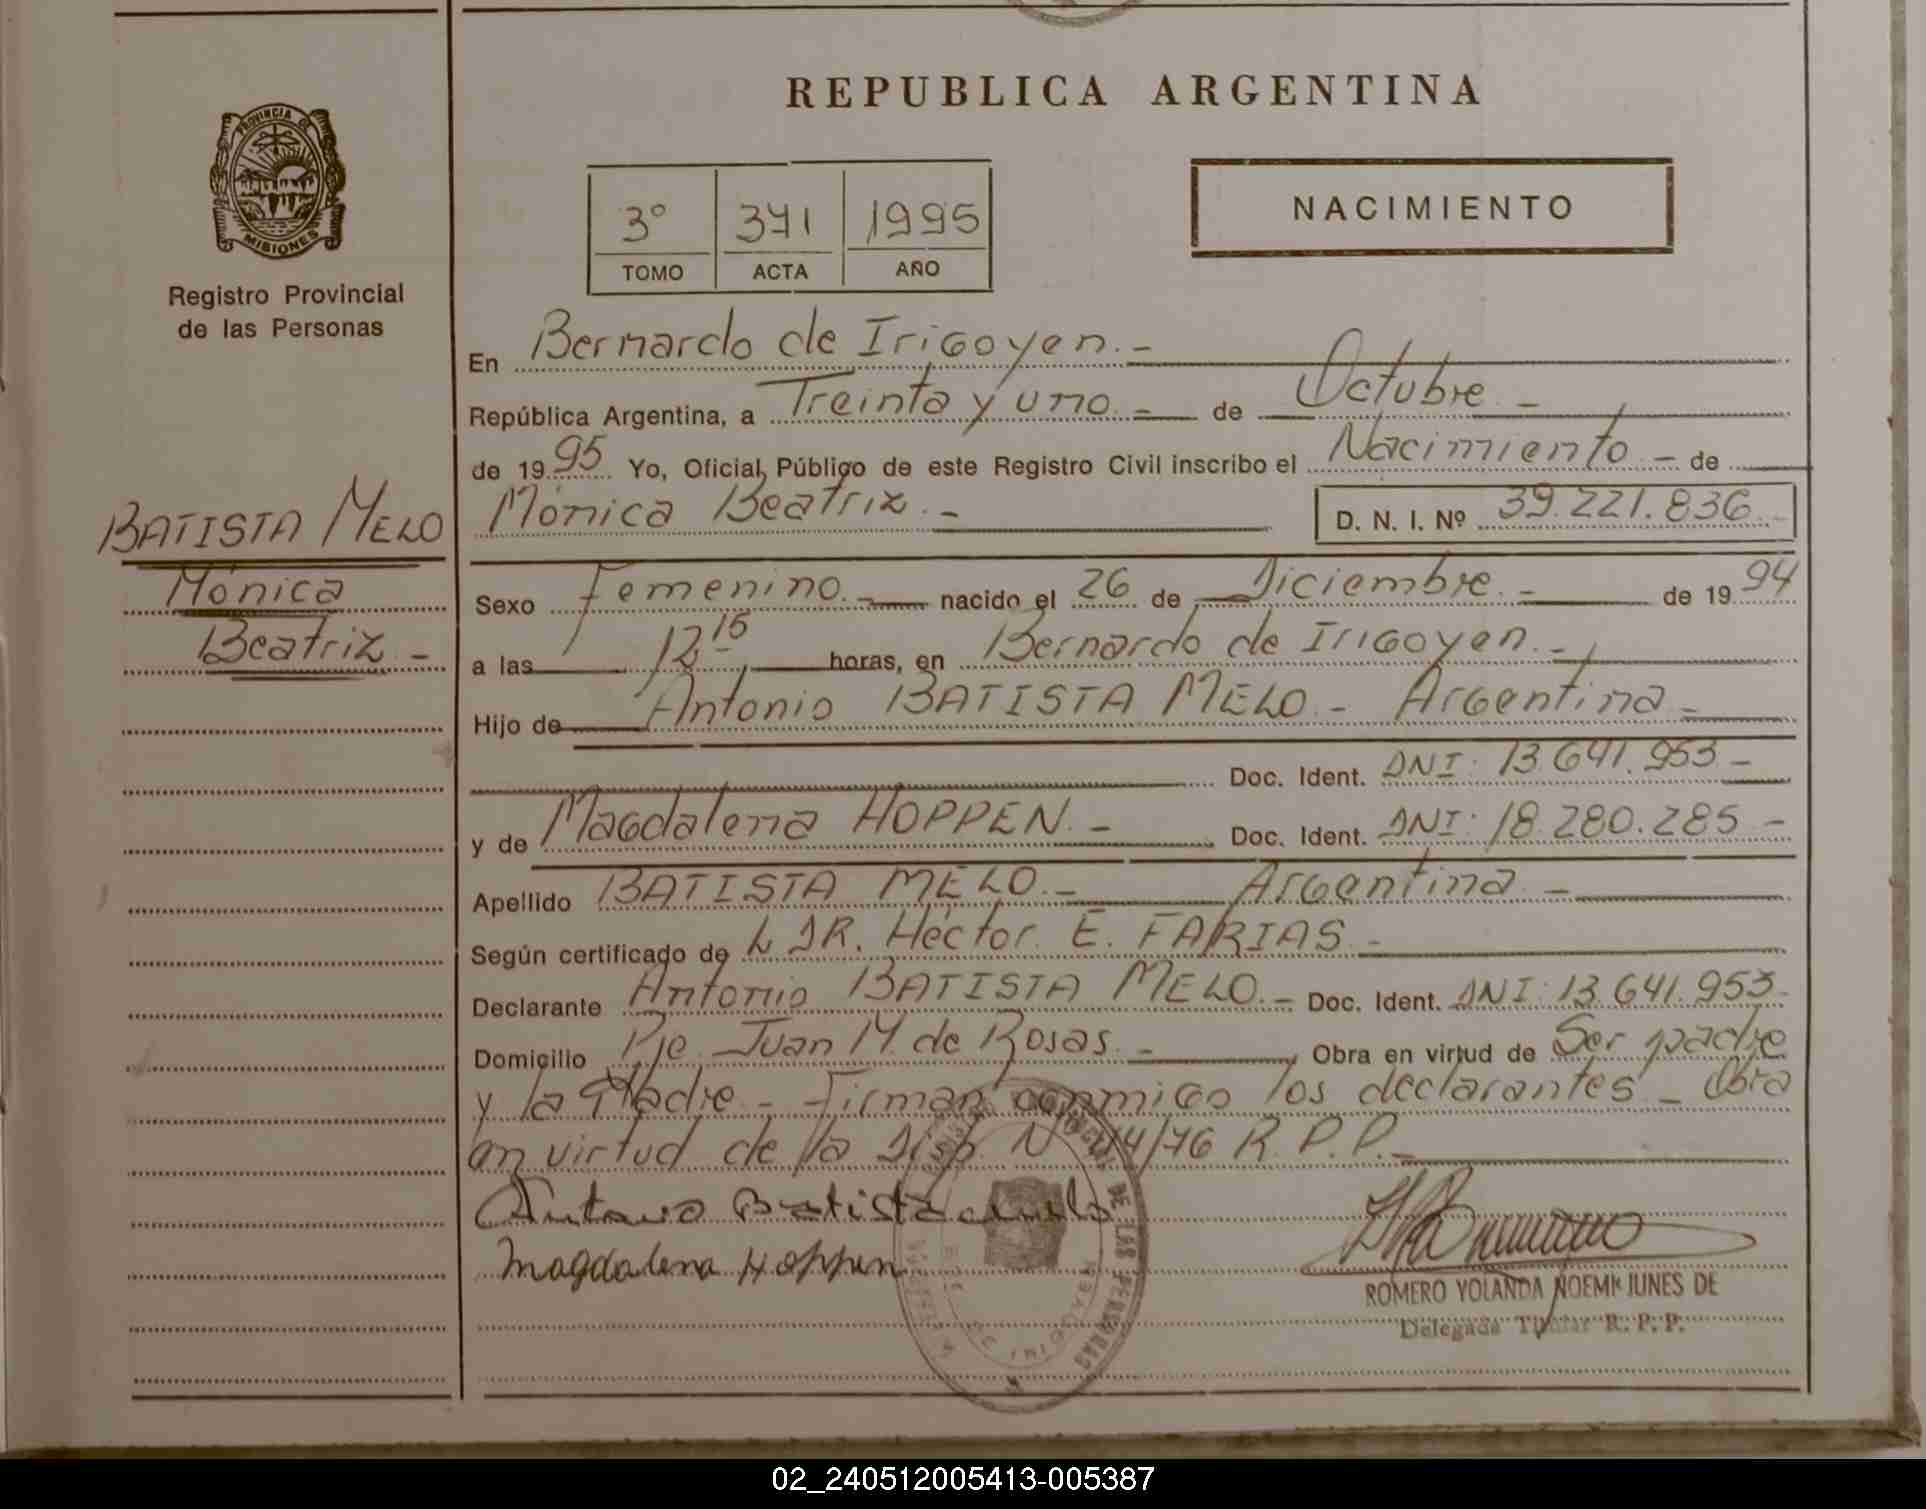 REPUBLICA ARGENTINA
PROVINCIA DE
MISIONES
Registro Provincial
de las Personas
3° 371 1995
TOMO ACTA AÑO
NACIMIENTO
BATISTA MELO
Mónica
Beatriz -
En Bernardo de Irigoyen. -
República Argentina, a Treinta y uno. - de Octubre. -
de 1995 Yo, Oficial Público de este Registro Civil inscribo el Nacimiento - de
Mónica Beatriz. - D. N. I. Nº 39.221.836. -
Sexo Femenino. - nacido el 26 de Diciembre. - de 1994
a las 12 15 horas, en Bernardo de Irigoyen. -
Hijo de Antonio BATISTA MELO - Argentina -
Doc. Ident. DNI: 13.641.953 -
y de Magdalena HOPPEN. - Doc. Ident. DNI: 18.280.285 -
Apellido BATISTA MELO. - Argentina. -
Según certificado de DR. Héctor E. FARIAS. -
Declarante Antonio BATISTA MELO. - Doc. Ident. DNI: 13.641.953-
Domicilio Pje. Juan M. de Rosas. - Obra en virtud de Ser padre
y la Madre - Firman conmigo los declarantes - Obra
en virtud de la Disp. N° /76 R. P. P. -
Antonio Batista melo
Magdalena Hoppen
DE LAS PERSONAS
DE IRIGOYEN
ROMERO YOLANDA NOEMI JUNES DE
Delegada Titular R. P. P.
02_240512005413-005387